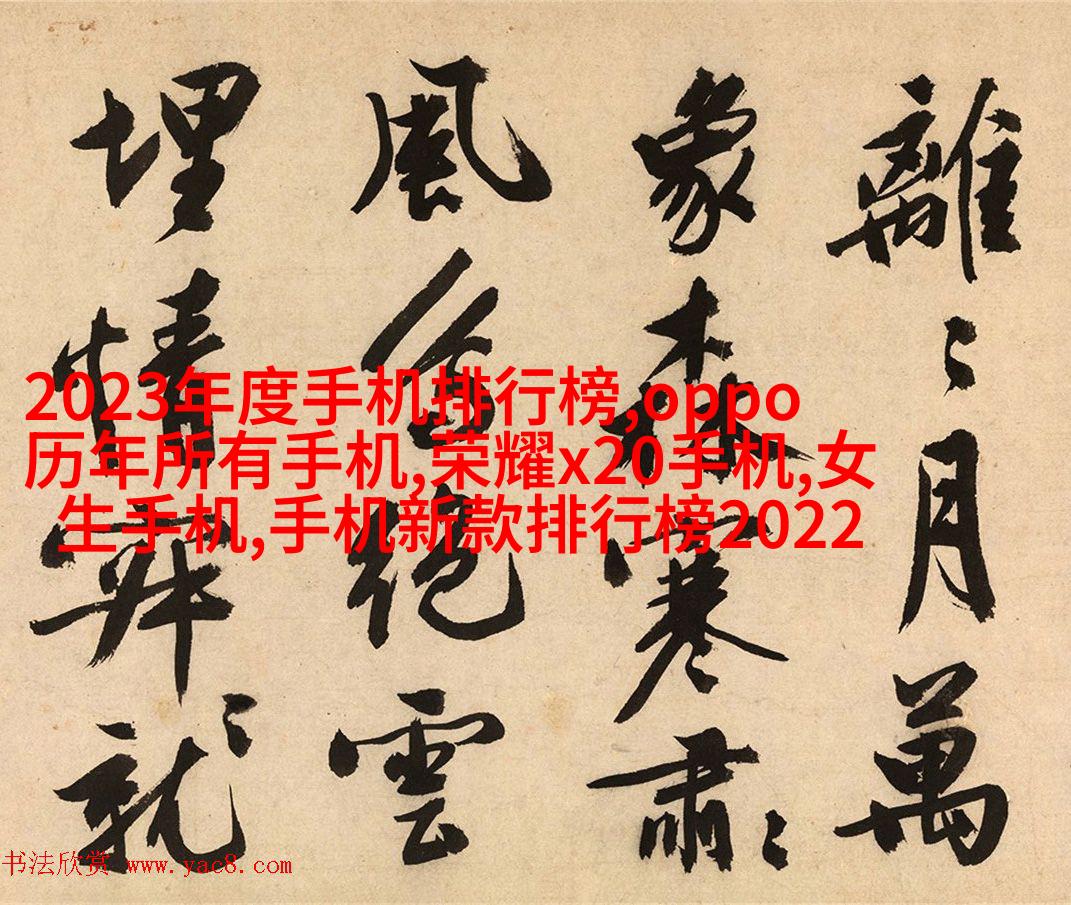 離〻月萬
象森寒肅〻
風絶雲
埋情就〻
2023年度手机排行榜,oppo
历年所有手机,荣耀x20手机,女
生手机,手机新款排行榜2022
书法欣赏 www.yac8.com